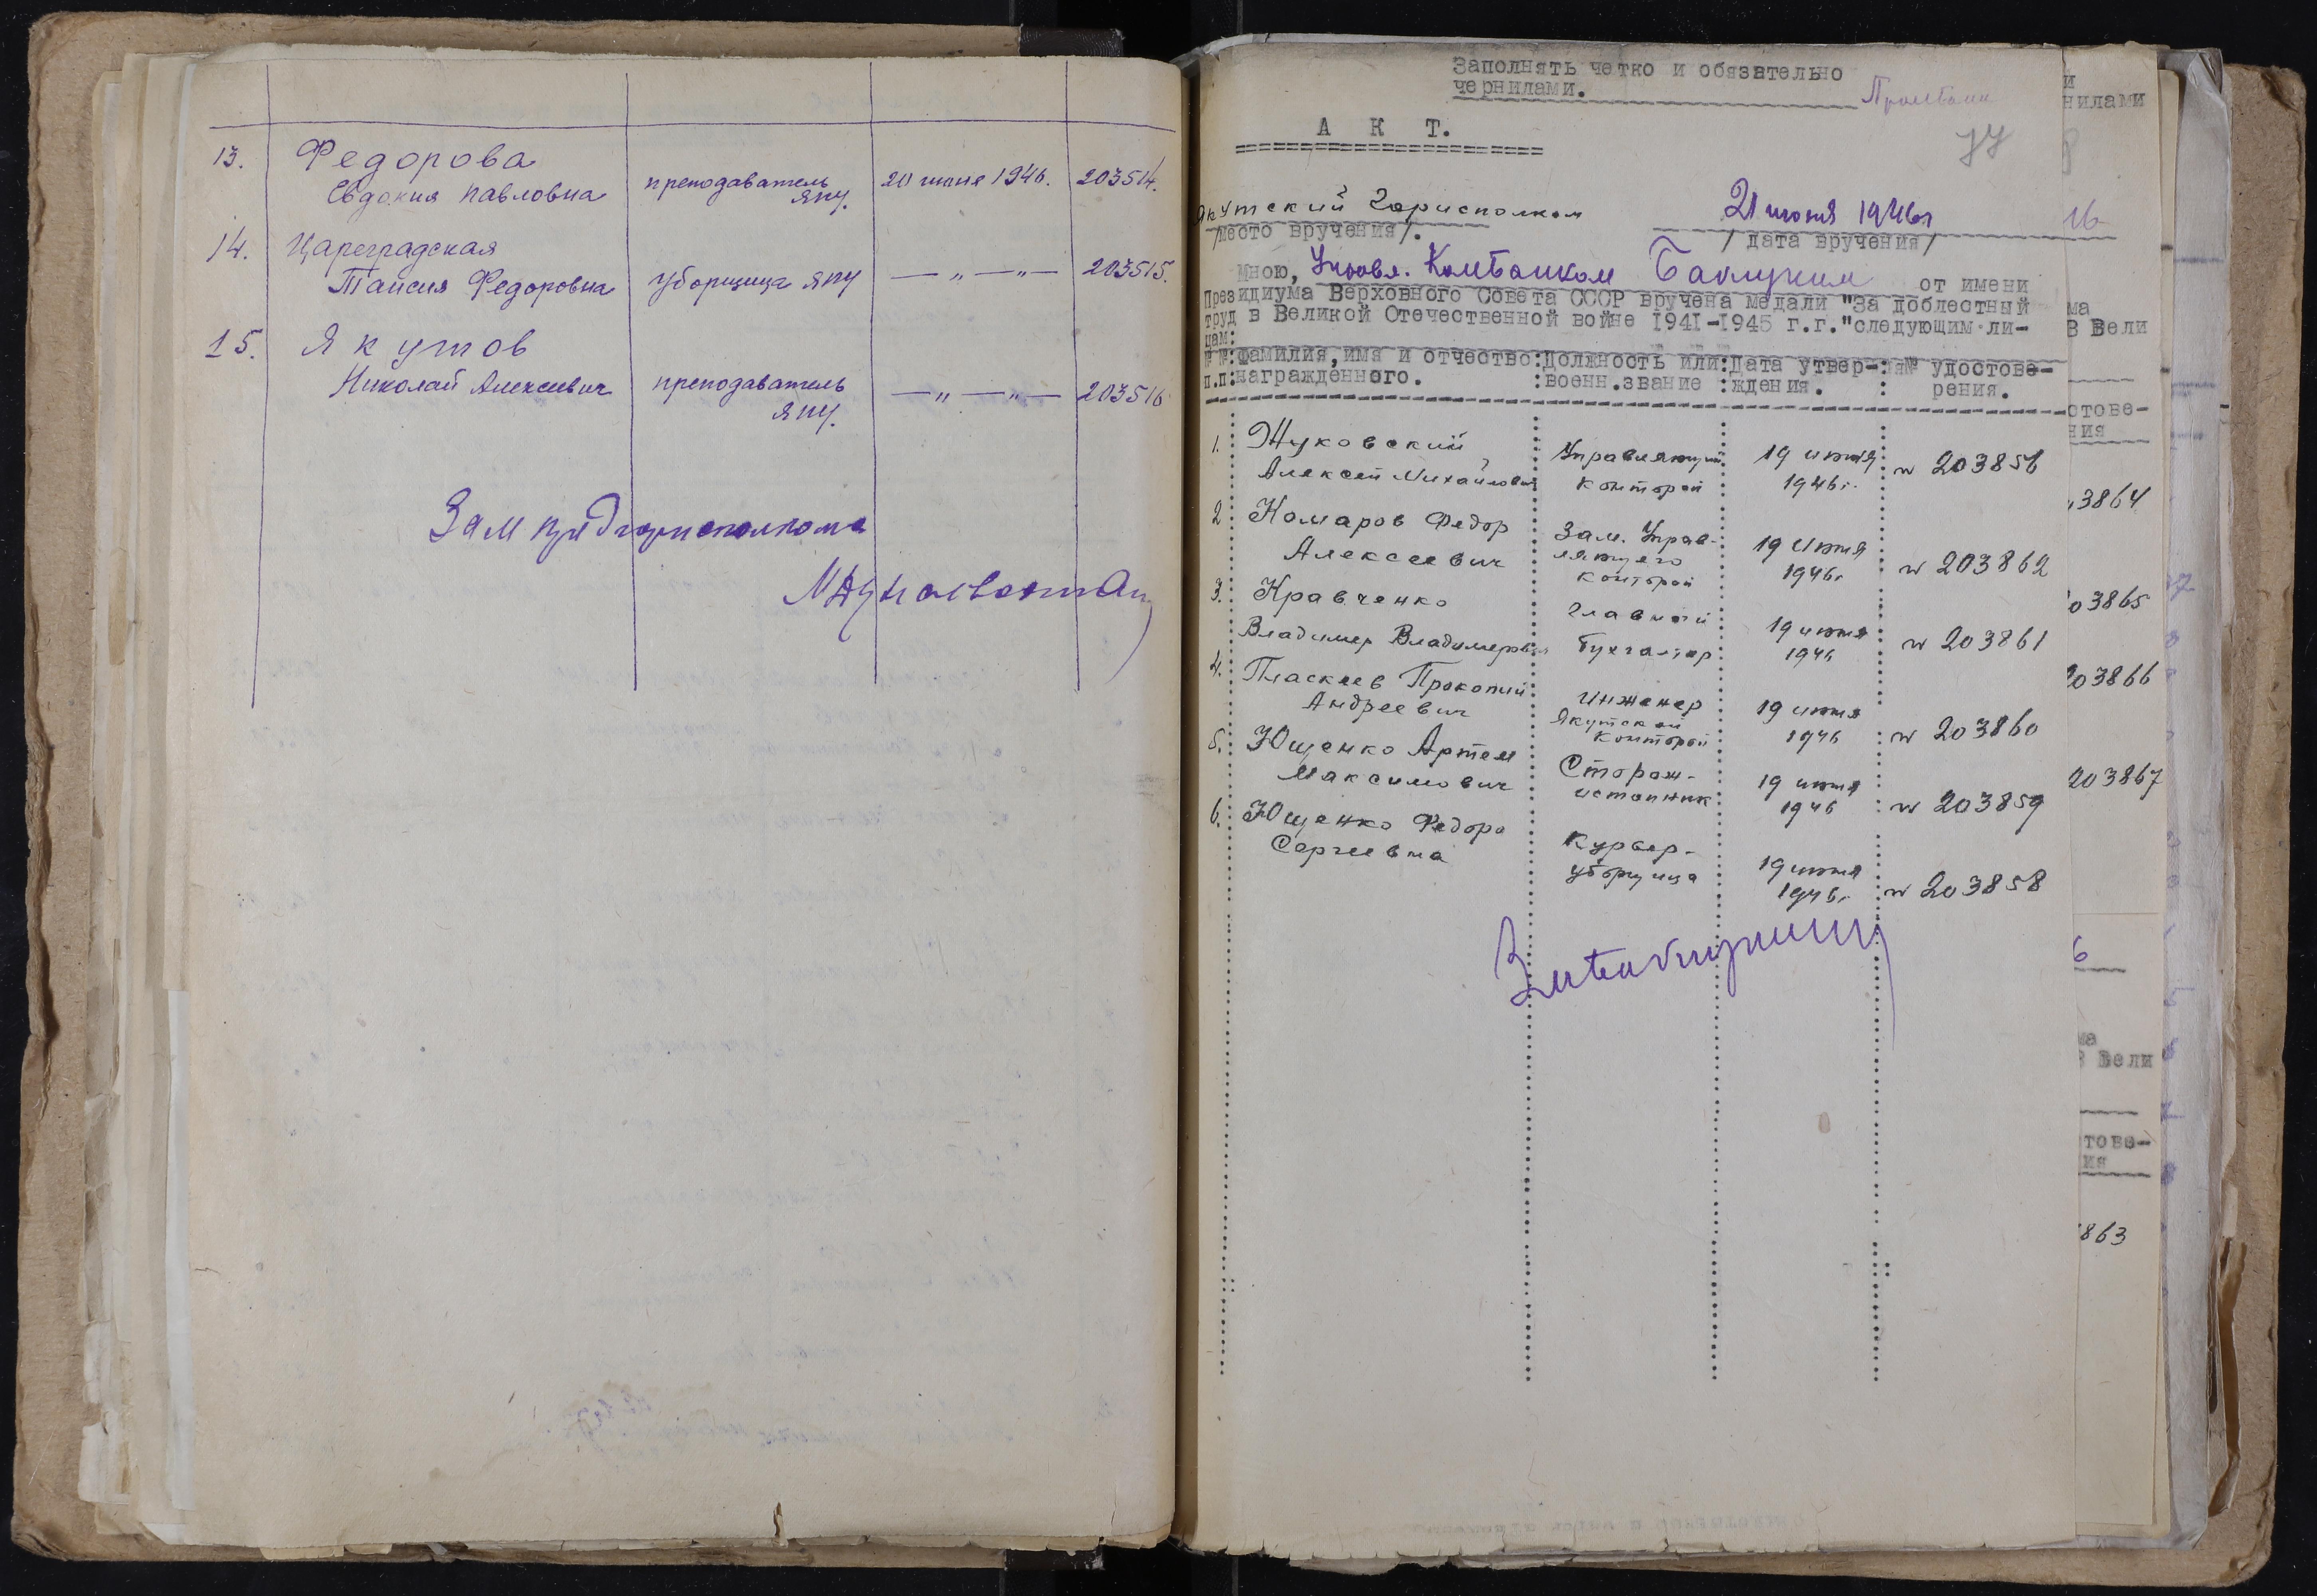 13. Федорова
Евдокия Павловна преподаватель ЯПУ. 20 июня 1946. 203514.
14. Цареградская
Таисия Федоровна уборщица ЯПУ —„—„— 203515.
15. Якутов
Николай Алексеевич преподаватель ЯПУ. —„—„— 203516
Зам предгорисполкома
Заполнять четко и обязательно
чернилами.
Промбанк
77
А К Т.
Якутский Горисполком 21 июня 1946г
/место вручения/. / дата вручения/
Мною, Управл. Комбанком от имени
Президиума Верховного Совета СССР вручена медали "За доблестный
труд в Великой Отечественной войне 1941-1945 г.г."следующим ли-
цам:
№№:фамилия,имя и отчество:Должность или:Дата утвер-:№№ удостове-
п.п:награжденного. :военн.звание :ждения. : рения.
1. Жуковский Управляющий 19 июня № 203856
Алексей Михайлович конторой 1946г.
2 Комаров Федор Зам. Управ- 19 июня
Алексеевич ляющего 1946г № 203862
конторой
3. Кравченко Главный 19 июня № 203861
Владимир Владимирович бухгалтер 1946
4. Пласкеев Прокопий Инженер 19 июня
Андреевич Якутской 1946 № 203860
конторой
5. Ющенко Артем Сторож- 19 июня
Максимович истопник 1946 № 203859
6. Ющенко Федора Курьер- 19 июня
Сергеевна уборщица 1946г № 203858
и
нилами
16
ма
В Вели
отове-
ния
3864
03865
203866
203867
6
ма
В Вели
тове-
ия
863